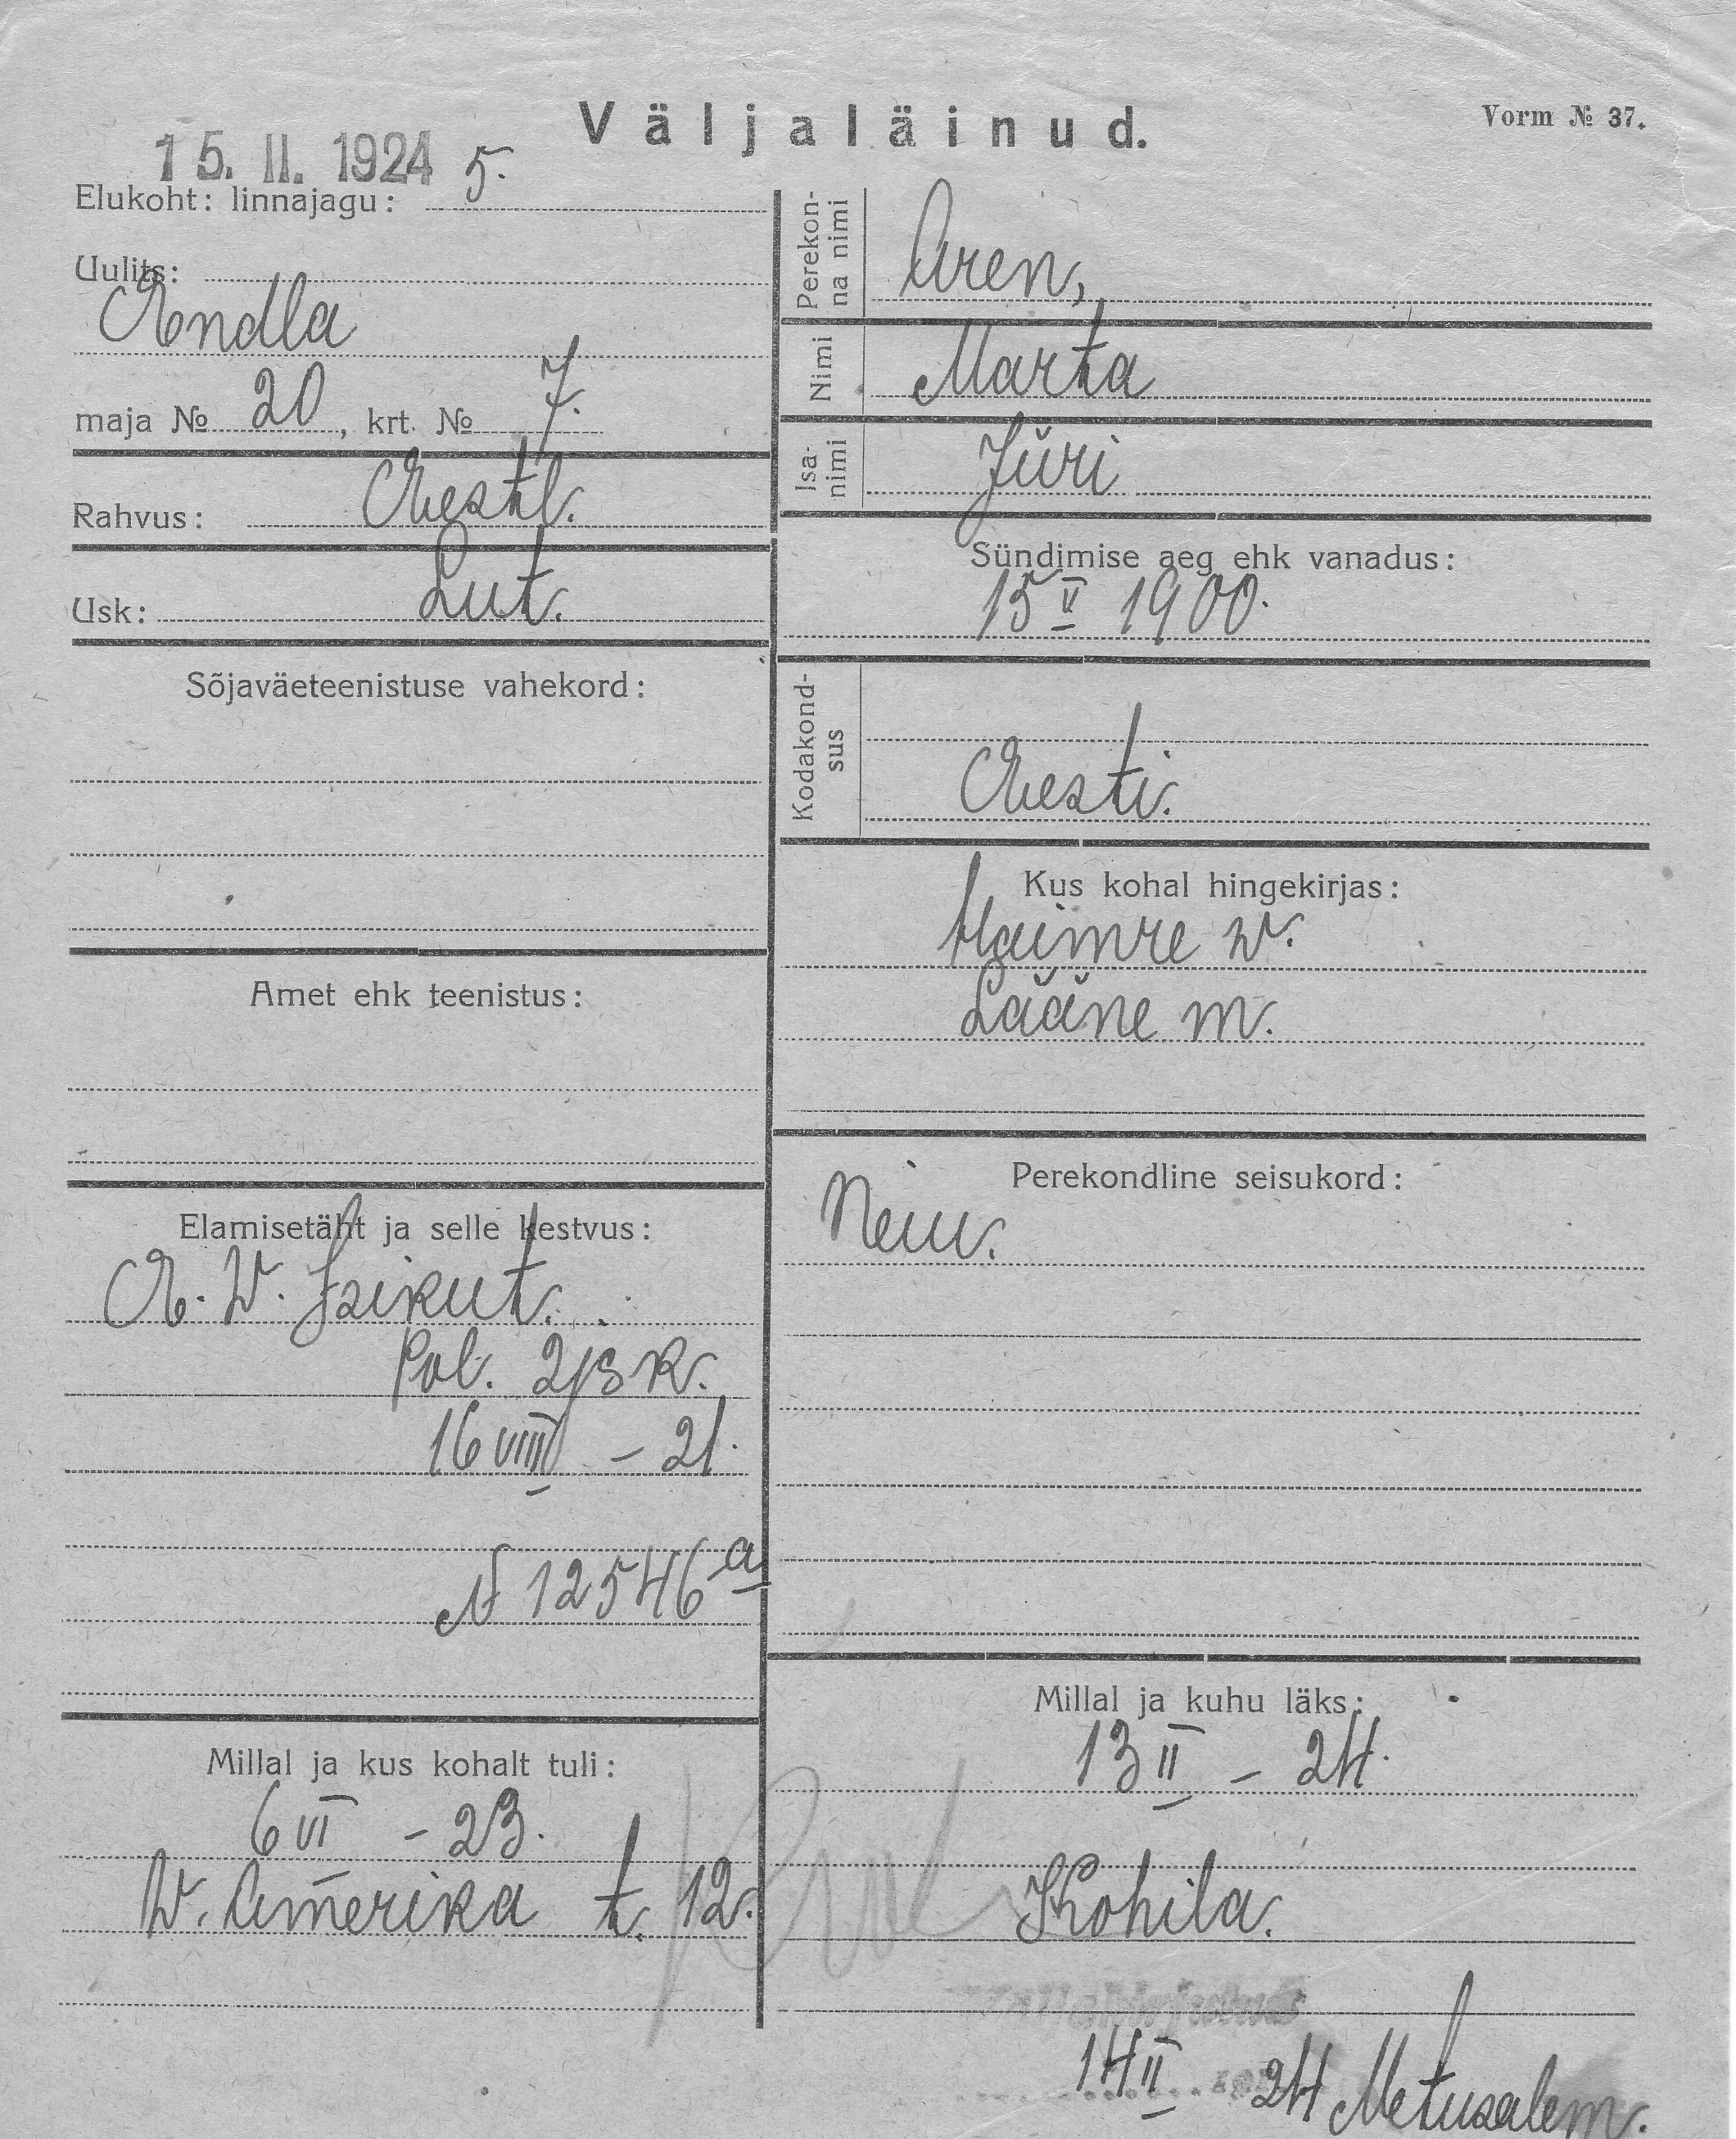 Väljaläinud.
Vorm № 37.
15. II. 1924
Elukoht: linnajagu: 5.
Uulits:
Endla
maja № 20, krt. № 7.
Rahvus: Eestl.
Usk: Lut.
Sõjaväeteenistuse vahekord:
Amet ehk teenistus:
Elamisetäht ja selle kestvus:
E. W. Isikut.
Pol. 2 js k.
16 VIII – 21.
№ 12546a
Millal ja kus kohalt tuli:
6 VI – 23.
W. Amerika t. 12.
Perekon-
na nimi
Aren,
Nimi Marta
Isa-
nimi
Jüri
Sündimise aeg ehk vanadus:
15 V 1900.
Kodakond-
sus
Eesti.
Kus kohal hingekirjas:
Haimre w.
Lääne m.
Perekondline seisukord:
Neiu.
Millal ja kuhu läks:
13 II – 24.
Kohila.
14 II 24 Metusalem.